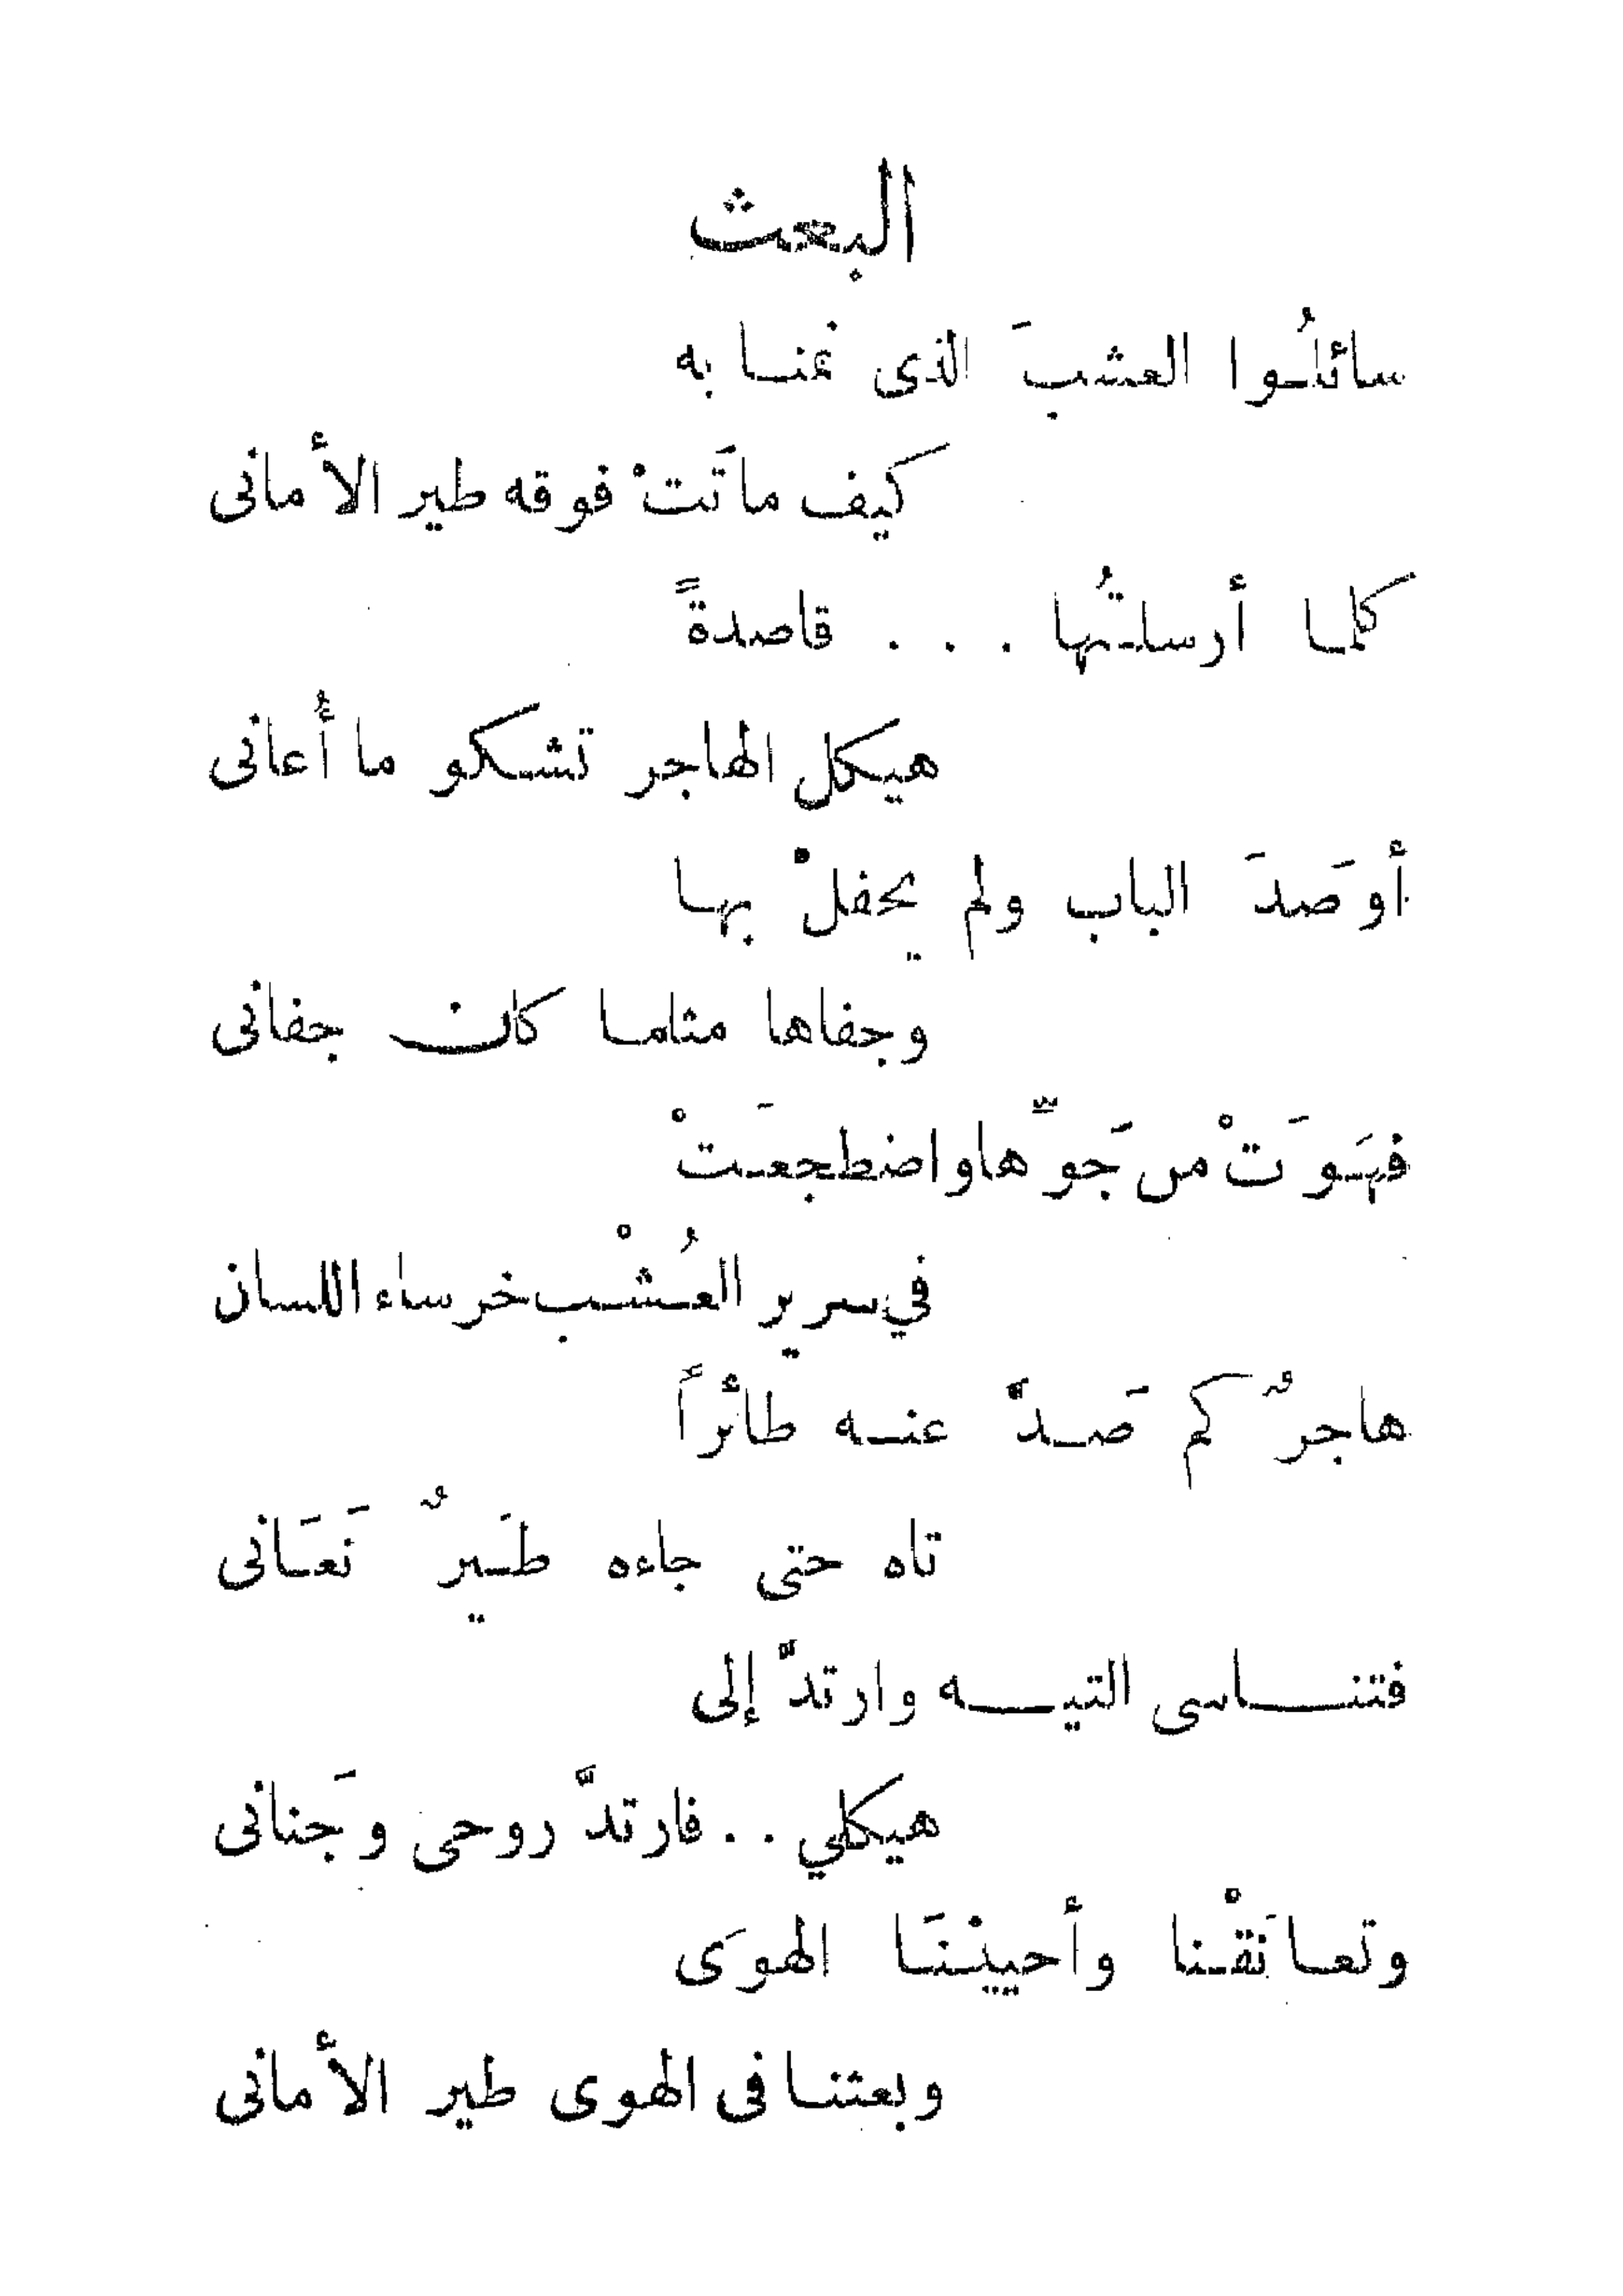 البعث
سائلُوا العشبَ الذى نمنا به
كيف ماتَتْ فوقه طير الأمانى
كلما أرسلتُها . . . قاصدةً
هيكل الهاجر تشكو ما أُعانى
أوصَدَ الباب ولم يحفلْ بها
وجفاها مثلما كان جفانى
فهَوَتْ من جَوِّها واضطجعَتْ
في سرير العُشْب خرساء اللسان
هاجرٌ كم صَدَّ عنه طائراً
تاه حتى جاءه طَيرٌ نَعَانى
فتناسى التيه وارتدَّ إلى
هيكلي . . فارتدَّ روحى وجَنانى
وتعانَقْنا وأحييْنَا الهوَى
وبعثنا فى الهوى طير الأمانى